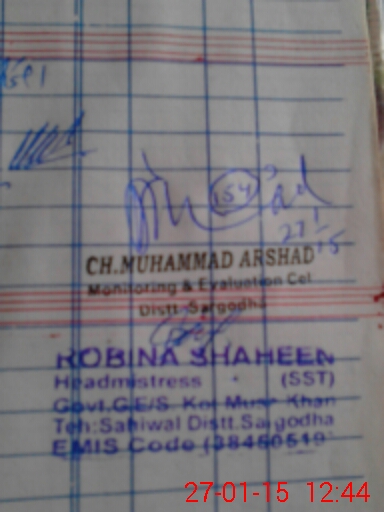 154
27/1/15
CH.MUHAMMAD ARSHAD
Monitoring & Evaluation Cel
Distt. Sargodha
ROBINA SHAHEEN
Headmistress (SST)
Govt.G.E/S. Kot Musa Khan
Teh:Sahiwal Distt.Sargodha
EMIS Code (38450519
27-01-15 12:44